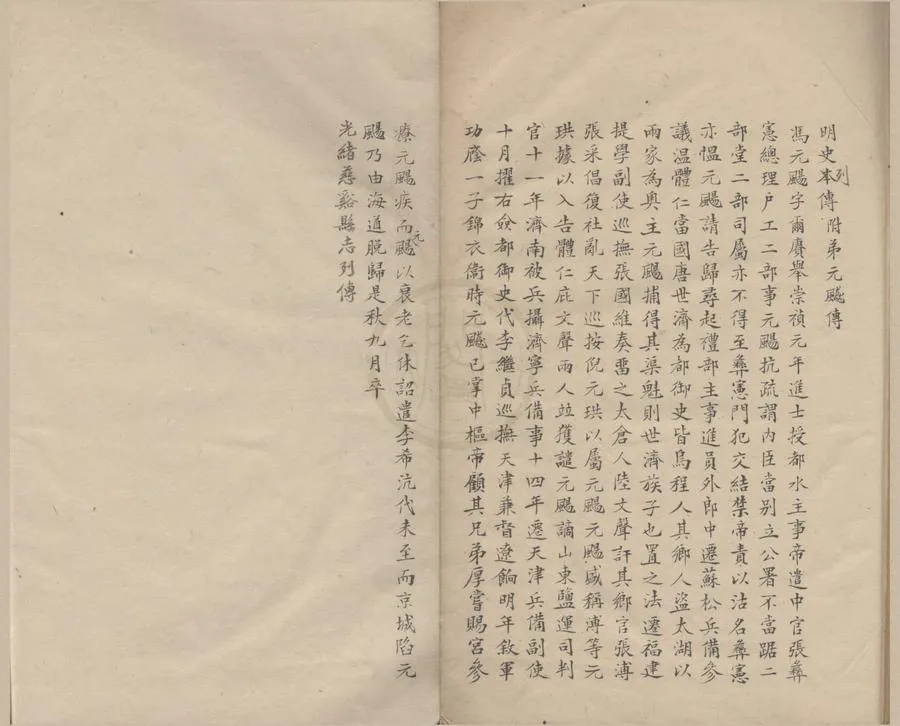 明史列本傳附弟元飈傳
馮元颺字爾賡舉崇禎元年進士授都水主事帝遣中官張彝
憲總理戶工二部事元颺抗疏謂內臣當別立公署不當踞二
部堂二部司屬亦不得至彝憲門犯交結禁帝責以沽名彝憲
亦慍元颺請告歸尋起禮部主事進員外郎中遷蘇松兵備參
議溫體仁當國唐世濟為都御史皆烏程人其鄉人盜太湖以
兩家為奥主元颺捕得其渠魁則世濟族子也置之法遷福建
提學副使巡撫張國維奏畱之太倉人陸文聲訐其鄉官張溥
張采倡復社亂天下巡按倪元珙以屬元颺元颺盛稱溥等元
珙據以入告體仁庇文聲兩人並獲譴元颺謫山東鹽運司判
官十一年濟南被兵攝濟寧兵備事十四年遷天津兵備副使
十月擢右僉都御史代李繼貞巡撫天津兼督遼餉明年敘軍
功廕一子錦衣衞時元飈已掌中樞帝顧其兄弟厚嘗賜宮參
療元颺疾而元颺以衰老乞休詔遣李希沆代未至而京城陷元
颺乃由海道脫歸是秋九月卒
光緒慈谿縣志列傳